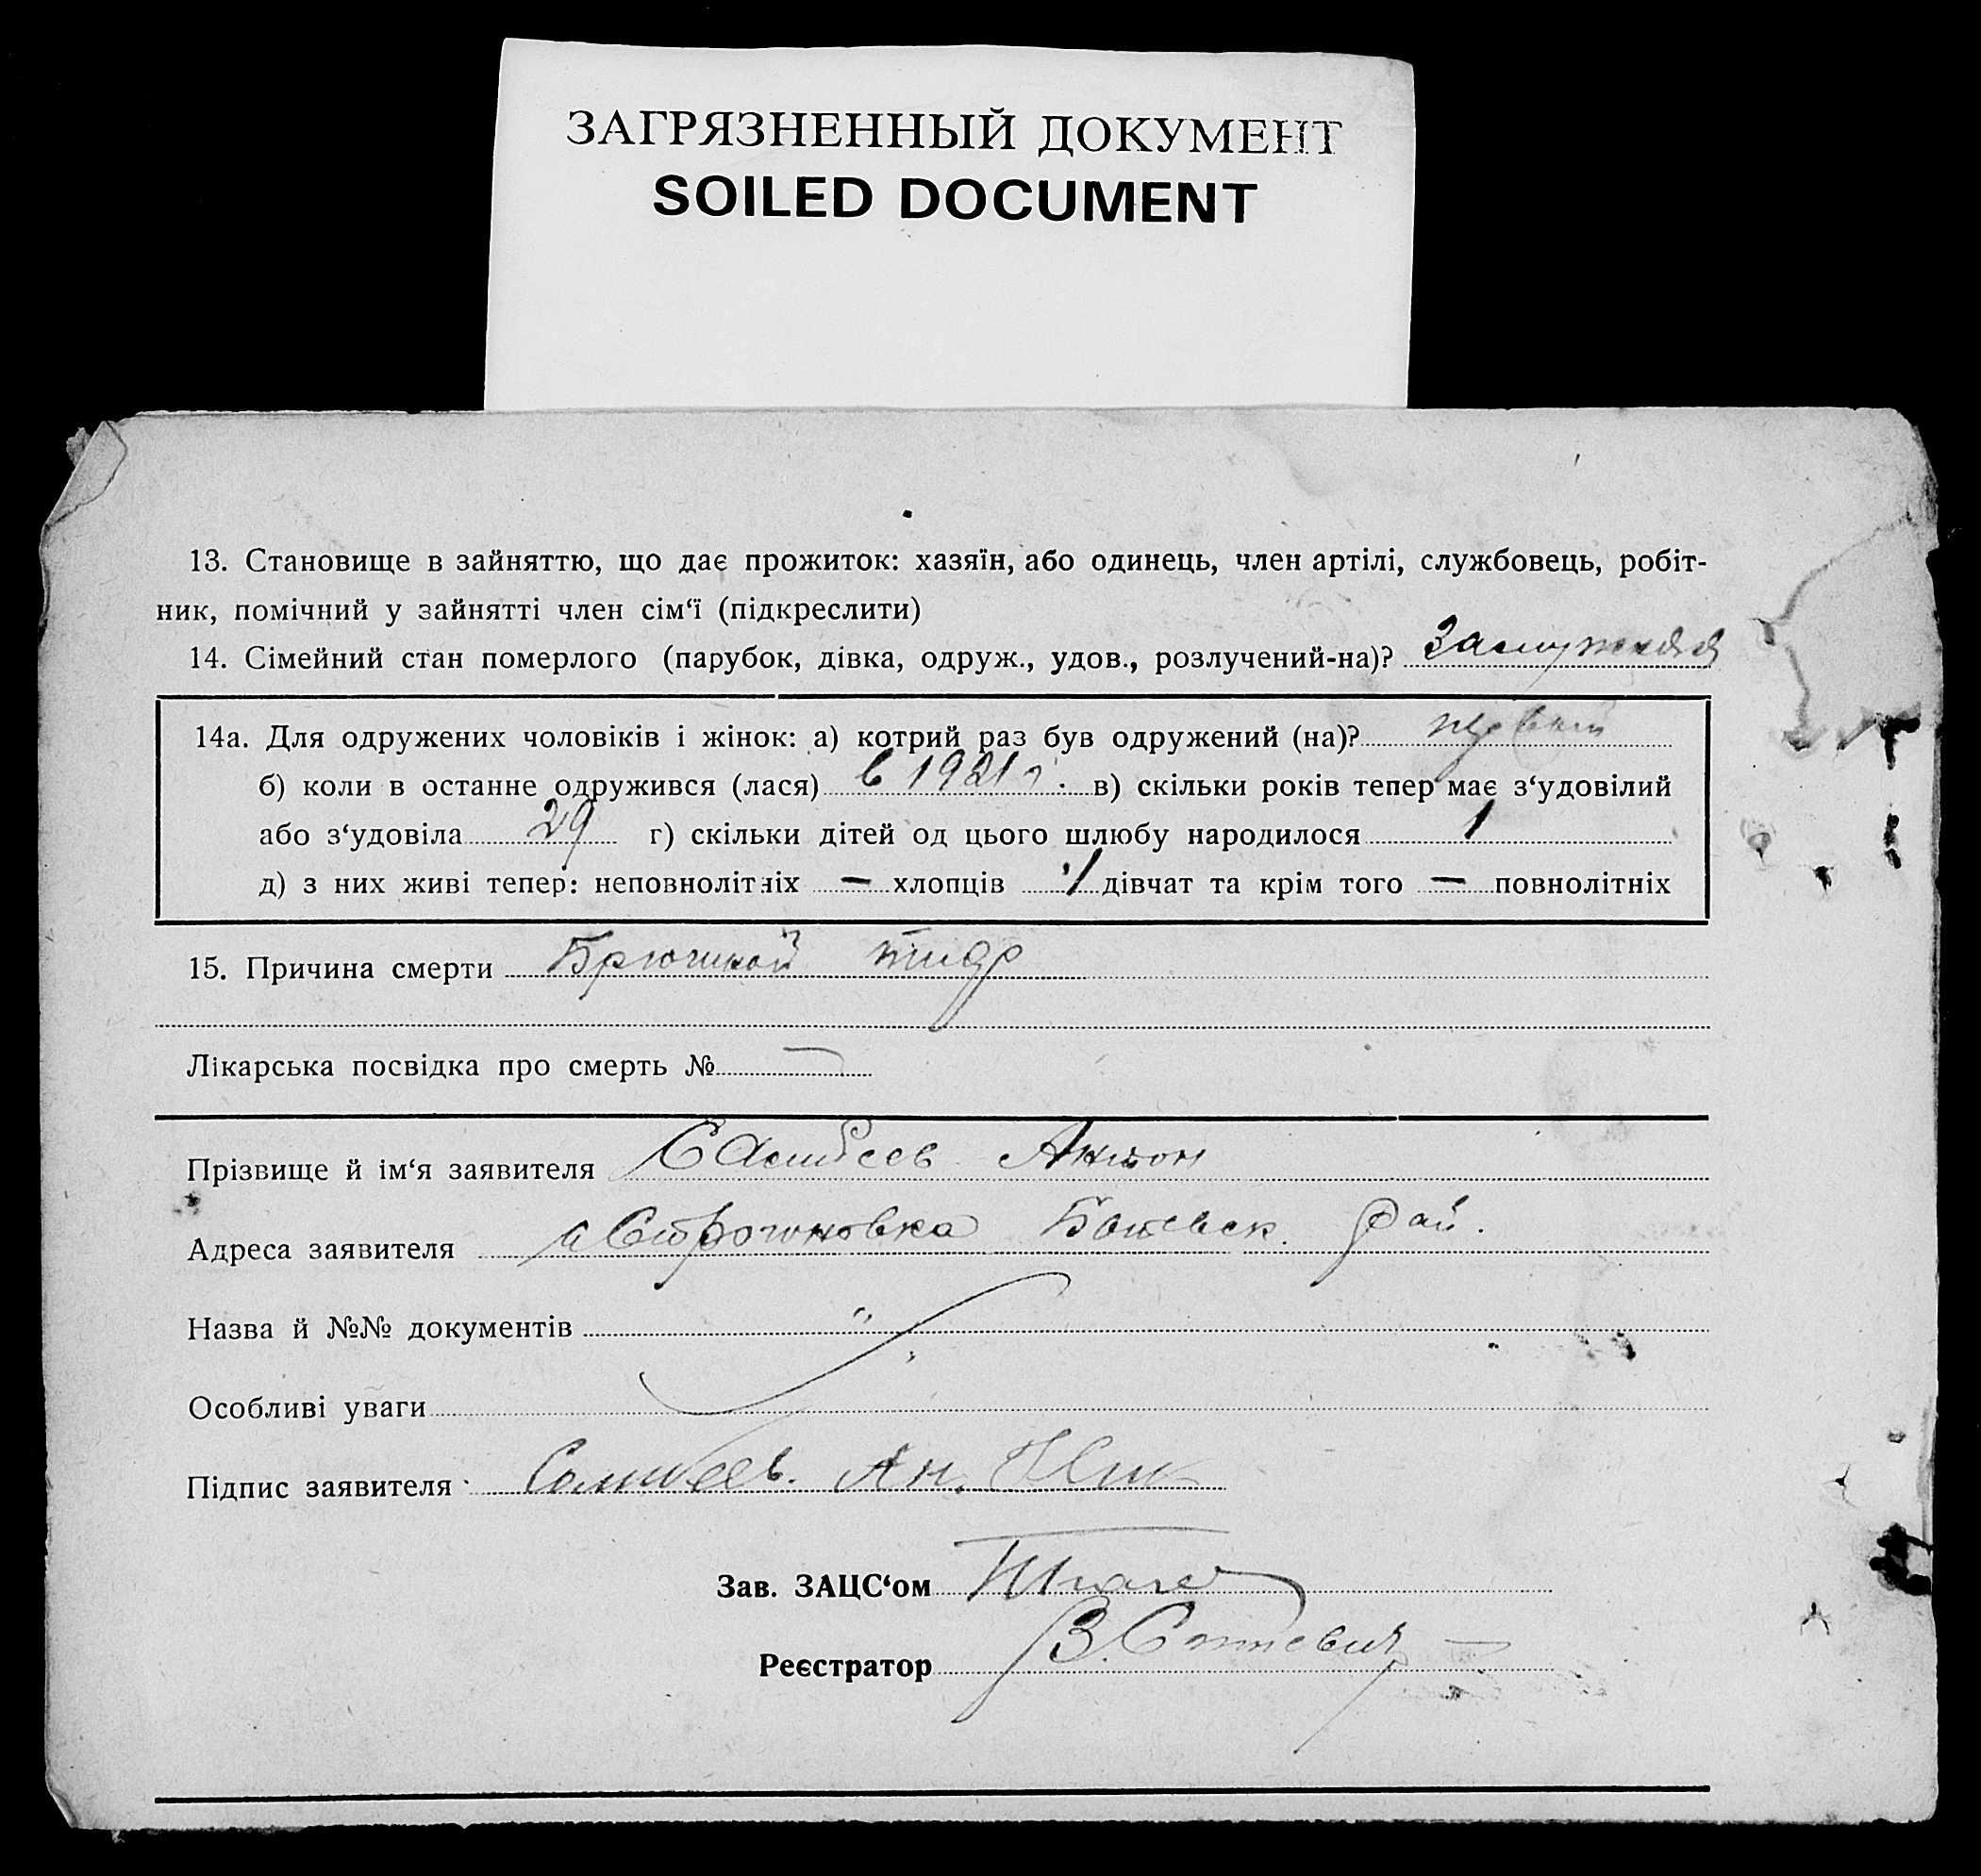 ЗАГРЯЗНЕННЫЙ ДОКУМЕНТ
SOILED DOCUMENT
13. Становище в зайняттю, що дає прожиток: хазяїн, або одинець, член артілі, службовець, робіт-
ник, помічний у зайнятті член сім‘ї (підкреслити)
14. Сімейний стан померлого (парубок, дівка, одруж., удов., розлучений-на)? Замужняя
14а. Для одружених чоловіків і жінок: а) котрий раз був одружений (на)?
б) коли в останне одружився (лася) в 1921 г. в) скільки років тепер має з‘удовілий
або з‘удовіла 29 г) скільки дітей од цього шлюбу народилося 1
д) з них живі тепер: неповнолітніх — хлопців 1 дівчат та крім того — повнолітніх
15. Причина смерти Брюшной тиф
Лікарська посвідка про смерть № —
Прізвище й ім‘я заявителя Антон
Адреса заявителя с Строгоновка рай.
Назва й №№ документів "
Особливі уваги
Підпис заявителя Ан.
Зав. ЗАЦС‘ом
Реєстратор В.